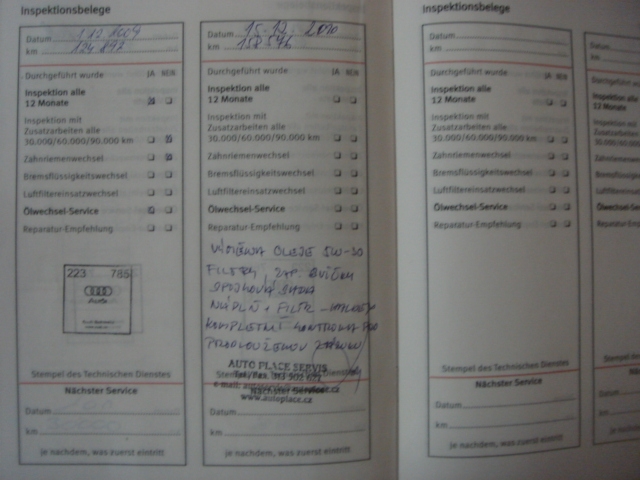 Inspektionsbelege
Datum
km 124 897
Durchgeführt wurde JA NEIN
Inspektion alle
12 Monate
Inspektion mit
Zusatzarbeiten alle
30.000/60.000/90.000 km
Zahnriemenwechsel
Bremsflüssigkeitswechsel
Luftfiltereinsatzwechsel
Ölwechsel-Service
Reparatur-Empfehlung
223 785
Audi
Stempel des Technischen Dienstes
Nächster Service
Datum
km 30000
Je nachdem, was zuerst eintritt
Datum 15.12. 2010
km 158 546
Durchgeführt wurde JA NEIN
Inspektion alle
12 Monate
Inspektion mit
Zusatzarbeiten alle
30.000/60.000/90.000 km
Zahnriemenwechsel
Bremsflüssigkeitswechsel
Luftfiltereinsatzwechsel
Ölwechsel-Service
Reparatur-Empfehlung
VÝMĚNA OLEJE 5W-30
FILTRY, ZAP. SVÍČKY
SPOJKOVÁ SADA
NÁPLŇ + FILTR
KOMPLETNÍ KONTROLA PRO
PRODLOUŽENOU ZÁRUKU
AUTO PLACE SERVIS
www.autoplace.cz
Nächster Service
Datum
km
Je nachdem, was zuerst eintritt
Inspektionsbelege
Datum
km
Durchgeführt wurde JA NEIN
Inspektion alle
12 Monate
Inspektion mit
Zusatzarbeiten alle
30.000/60.000/90.000 km
Zahnriemenwechsel
Bremsflüssigkeitswechsel
Luftfiltereinsatzwechsel
Ölwechsel-Service
Reparatur-Empfehlung
Stempel des Technischen Dienstes
Nächster Service
Datum
km
Je nachdem, was zuerst eintritt